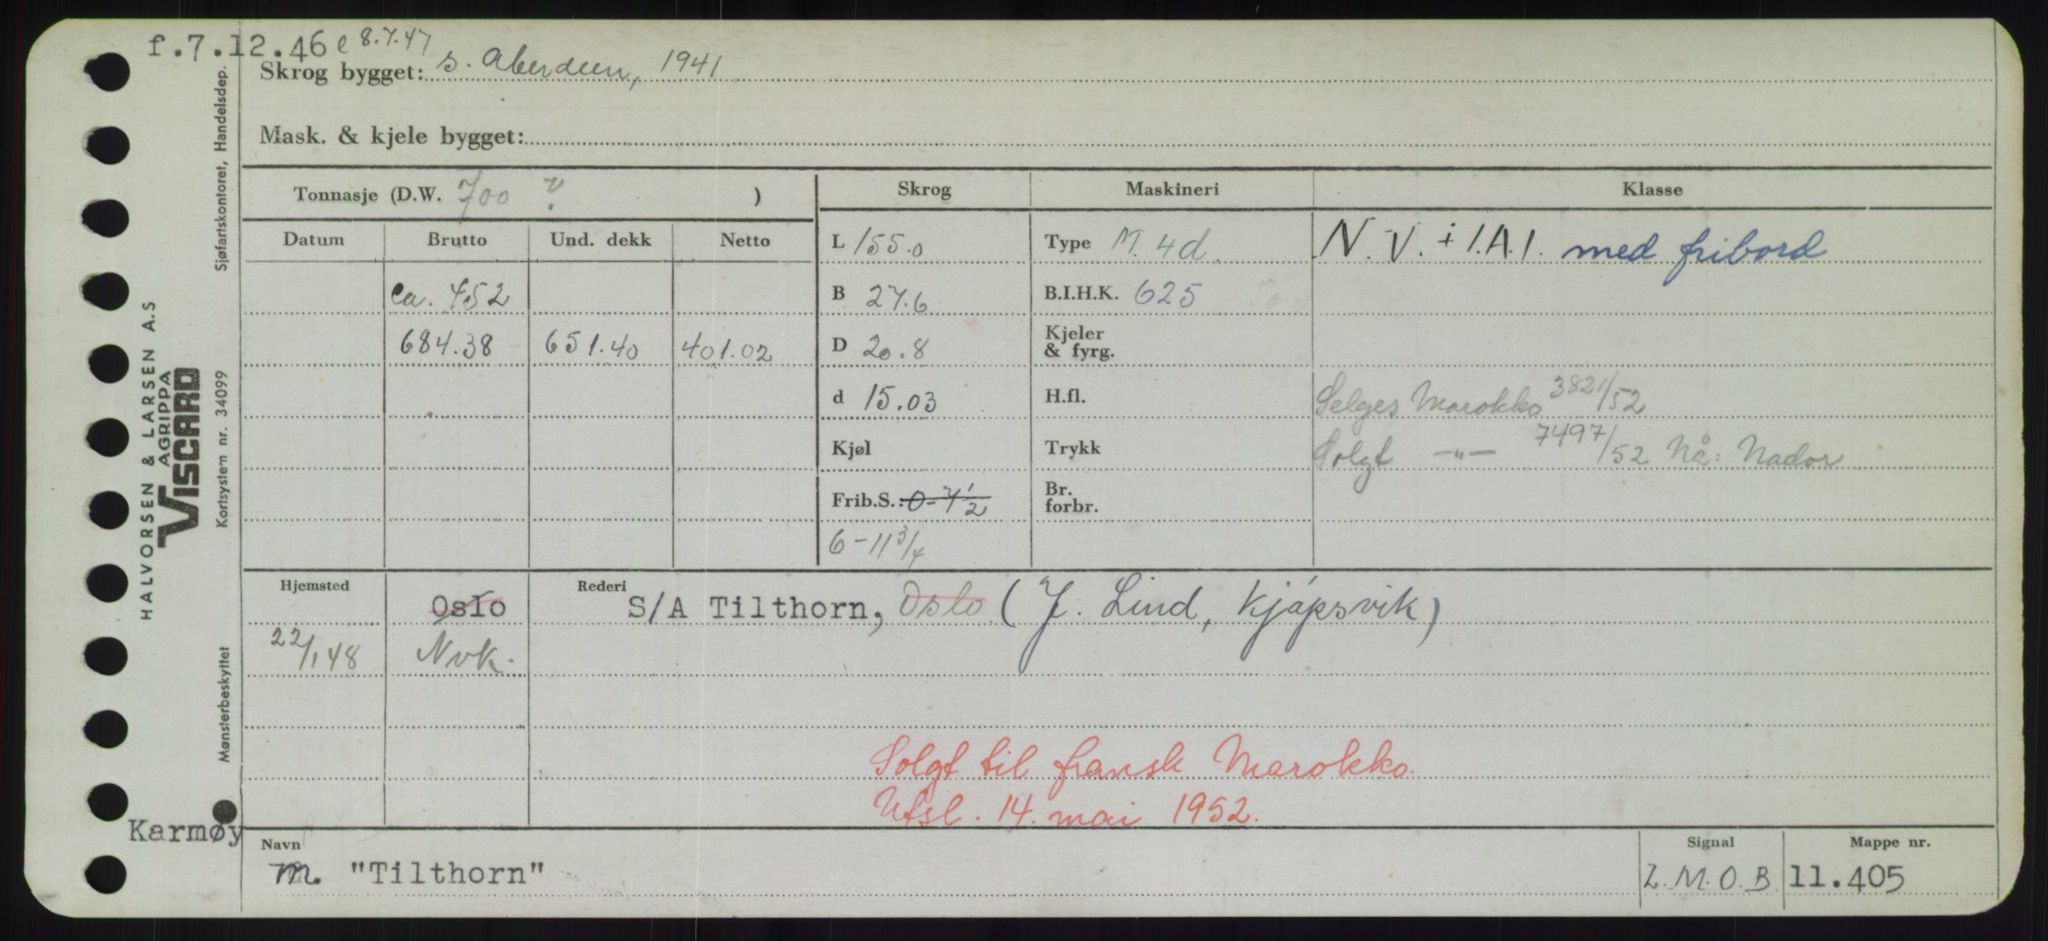 f.7.12.46 e 8.7.47
Skrog bygget: s. Aberdeen, 1941
Mask. & kjele bygget:
Tonnasje (D.W. 700 ? )
Skrog Maskineri Klasse
Datum Brutto Und. dekk Netto
L 155.0 Type M. 4d. N.V. + 1.A.1. med fribord
ca. 452
B 27.6 B.I.H.K. 625
684.38 651.40 401.02
D 20.8 Kjeler & fyrg.
d 15.03 H.fl. Selges Marokko 3821/52
Kjøl Trykk Solgt -"- 7497/52 Nå: Nador
Frib.S.: 0-7½ Br. forbr.
6-11¾
Hjemsted Rederi
Oslo S/A Tilthorn, Oslo (J. Lind, Kjøpsvik)
22/1 48 Nvk.
Solgt til fransk Marokko.
Utsl. 14. mai 1952.
Karmøy
Navn Signal Mappe nr.
m. "Tilthorn" L.M.O.B 11.405
HALVORSEN & LARSEN A.S
AGRIPPA
VISCARD
Mønsterbeskyttet Kortsystem nr. 34099 Sjøfartskontoret, Handelsdep.